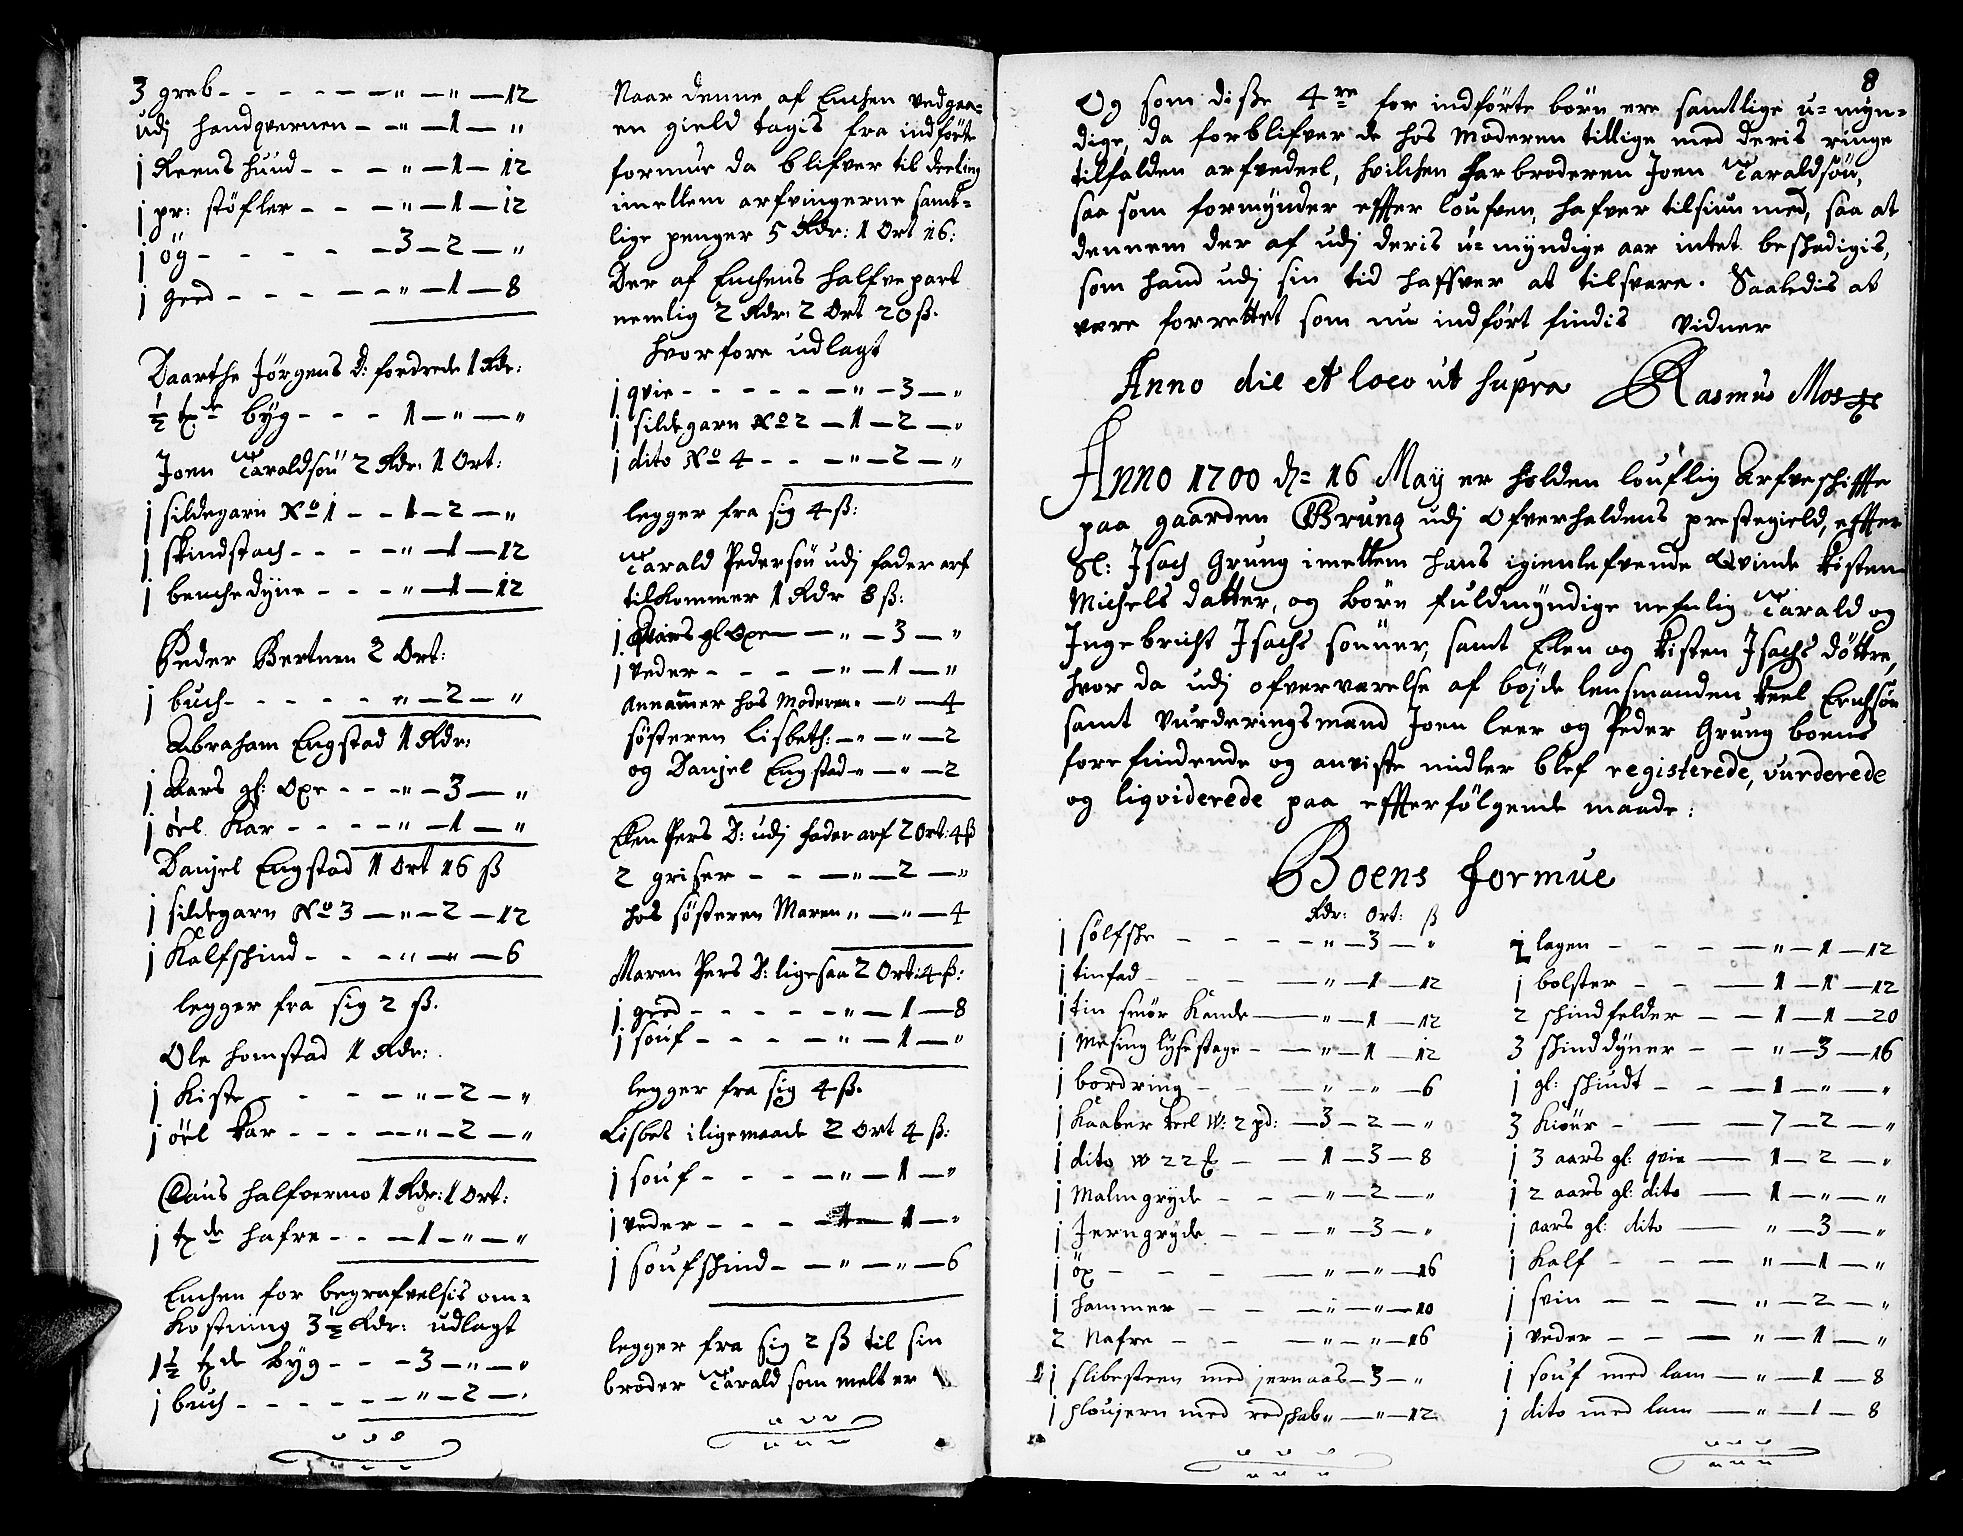 3 greb - - - - - - „ - „ - 12
udj handqvernen - - „ - 1 - „
1 Reens huud - - - „ - 1 - 12
1 pr: støfler - - - „ - 1 - 12
1 øg - - - - - 3 - 2 - „
1 gied - - - - „ - 1 - 8
Daarthe Jørgens D: fordrede 1 Rdr:
½ tde byg - - - 1 - „ - „
Joen Taraldsøn 2 Rdr: 1 Ort:
1 sildegarn No 1 - - 1 - 2 - „
1 skindstach - - - „ - 1 - 12
1 benchedyne - - - „ - 1 - 12
Peder Bertnem 2 Ort:
1 buch - - - - - „ - 2 - „
Abraham Engstad 1 Rdr:
1 Aars gl: Oxe - - - „ - 3 - „
1 øel Kar - - - - „ - 1 - „
Danjel Engstad 1 Ort 16 ß
1 sildegarn No 3 - „ - 2 - 12
1 Kalfschind - - - „ - „ - 6
legger fra sig 2 ß.
Ole Homstad 1 Rdr:
1 Kiste - - - - „ - 2 - „
1 øel kar - - - - „ - 2 - „
Claus halfvermo 1 Rdr: 1 Ort:
1 tde hafre - - - 1 - „ - „
Enchen for begrafvelsis om-
kostning 3½ Rdr: udlagt
1½ tde byg - - - 3 - „ - „
1 buch - - - - - „ - 2 - „
Naar denne af Enchen vedgaa-
en gield tagis fra indførte
formue da blifver til deeling
imellem arfvingerne samt-
lige penger 5 Rdr: 1 Ort 16:
Der af Enchens halfve part
nemlig 2 Rdr: 2 Ort 20 ß.
hvorfore udlagt
1 qvie - - - - - „ - 3 - „
1 sildegarn No 2 - 1 - 2 - „
1 dito No 4 - - - „ - 2 - „
legger fra sig 4 ß:
Tarald Pedersøn udj fader arf
tilkommer 1 Rdr 8 ß:
1 Aars gl Oxe - - „ - 3 - „
1 veder - - - - „ - 1 - „
Annammer hos Moderen - „ - 4
søsteren Lisbeth: - „ - „ - 2
og Danjel Engstad - „ - „ - 2
Elen Pers D: udj fader arf 2 Ort: 4 ß
2 griser - - - „ - 2 - „
hos søsteren Maren „ - „ - 4
Maren Pers D: ligesaa 2 Ort: 4 ß:
1 gied - - - - - „ - 1 - 8
1 souf - - - - - „ - 1 - „
legger fra sig 4 ß.
Lisbet i ligemaade 2 Ort 4 ß:
1 souf - - - - „ - 1 - „
1 veder - - - - 1 - „
1 soufschind - - „ - „ - 6
legger fra sig 2 ß til sin
broder Tarald som melt er
8
Og som diße 4re for indførte børn ere samtlige u-myn-
dige, da forblifver de hos Moderen tillige med deris ringe
tilfalden arfvedeel, hvilchen farbroderen Joen Taraldsøn,
saa som formynder effter loufven, hafver tilsiun med, saa at
dennem der af udj deris u-myndige aar intet beschadigis,
som hand udj sin tid haffver at tilsvare. Saaledis at
være forrettet som nu indført findis vidner
Anno die et loco ut supra Rasmus Mos
Anno 1700 d: 16 May er holden louflig Arfveschiffte
paa gaarden Grung udj Ofverhaldens prestegield, effter
Sl: Isach Grung imellem hans igienlefvende Qvinde Kisten
Michels datter, og børn fuldmyndige nefnlig Tarald og
Ingebricht Isachs sønner, samt Elen og Kisten Isachs døttre,
hvor da udj ofverværelse af bøjde lensmanden Keel Erichsøn
samt Vurderingsmænd Joen leer og Peder Grung boens
forefindende og anviste midler blef registerede, vurderede
og liqviderede paa effterfølgende maade:
Boens formue
Rdr: Ort: ß
1 sølfske - - - - „ - 3 - „
1 tinfad - - - - „ - 1 - 12
1 tin smør Kande - „ - 1 - 12
1 Mesing lysestage - - „ - 1 - 12
1 bordring - - - „ - „ - 6
1 Kaaber Keel W: 2 pd: - 3 - 2 - „
1 dito W 22 ℔ - - 1 - 3 - 8
1 Malmgryde - - - „ - 2 - „
1 Jerngryde - - - „ - 3 - „
1 øx - - - - „ - „ - 16
1 hammer - - - „ - „ - 10
2 Nafre - - - „ - „ - 16
1 slibesteen med jernaas - 3 - „
1 ploujern med redskab „ - „ - 12
1 lagen - - - - „ - 1 - 12
1 bolster - - - 1 - 1 - 12
2 schindfelder - - 1 - 1 - 20
3 schinddyner - - „ - 3 - 16
1 gl: schindt - - - 1 - „ - „
3 Kiøer - - - 7 - 2 - „
1 3 aars gl: qvie - 1 - 2 - „
1 2 aars gl: dito - 1 - „ - „
1 aars gl: dito - „ - 3 - „
1 Kalf - - - „ - 1 - „
1 svin - - - „ - 2 - „
1 veder - - - „ - 1 - „
1 souf med lam - „ - 1 - 8
1 dito med lam - „ - 1 - 8